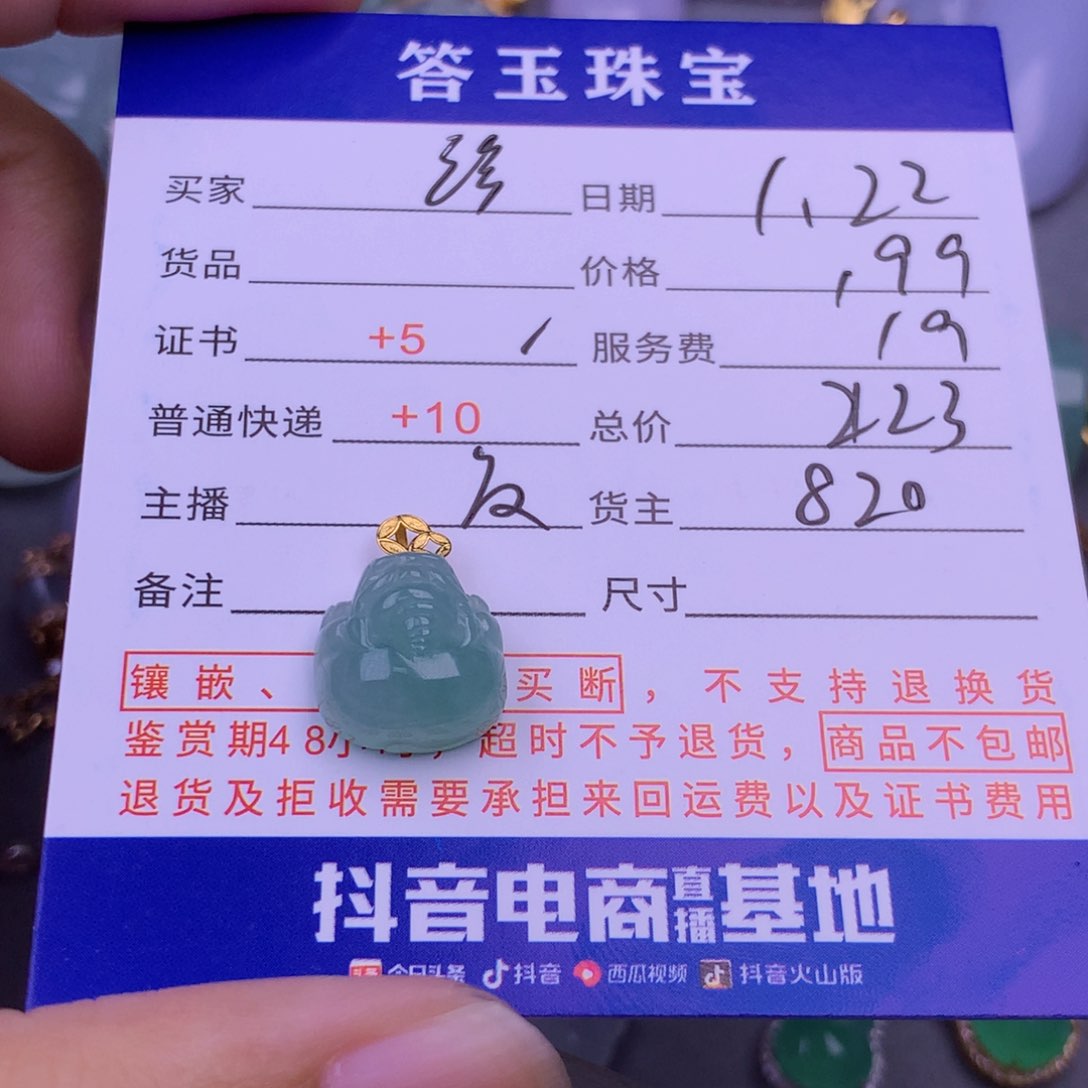 答玉珠宝
买家 珍 日期 1.22
货品 价格 ,99
证书 +5 服务费 19
普通快递 +10 总价 123
主播 货主 820
备注 尺寸
镶嵌、 买断，不支持退换货
鉴赏期48小 超时不予退货，商品不包邮
退货及拒收需要承担来回运费以及证书费用
抖音电商直播基地
今日头条 抖音 西瓜视频 抖音火山版